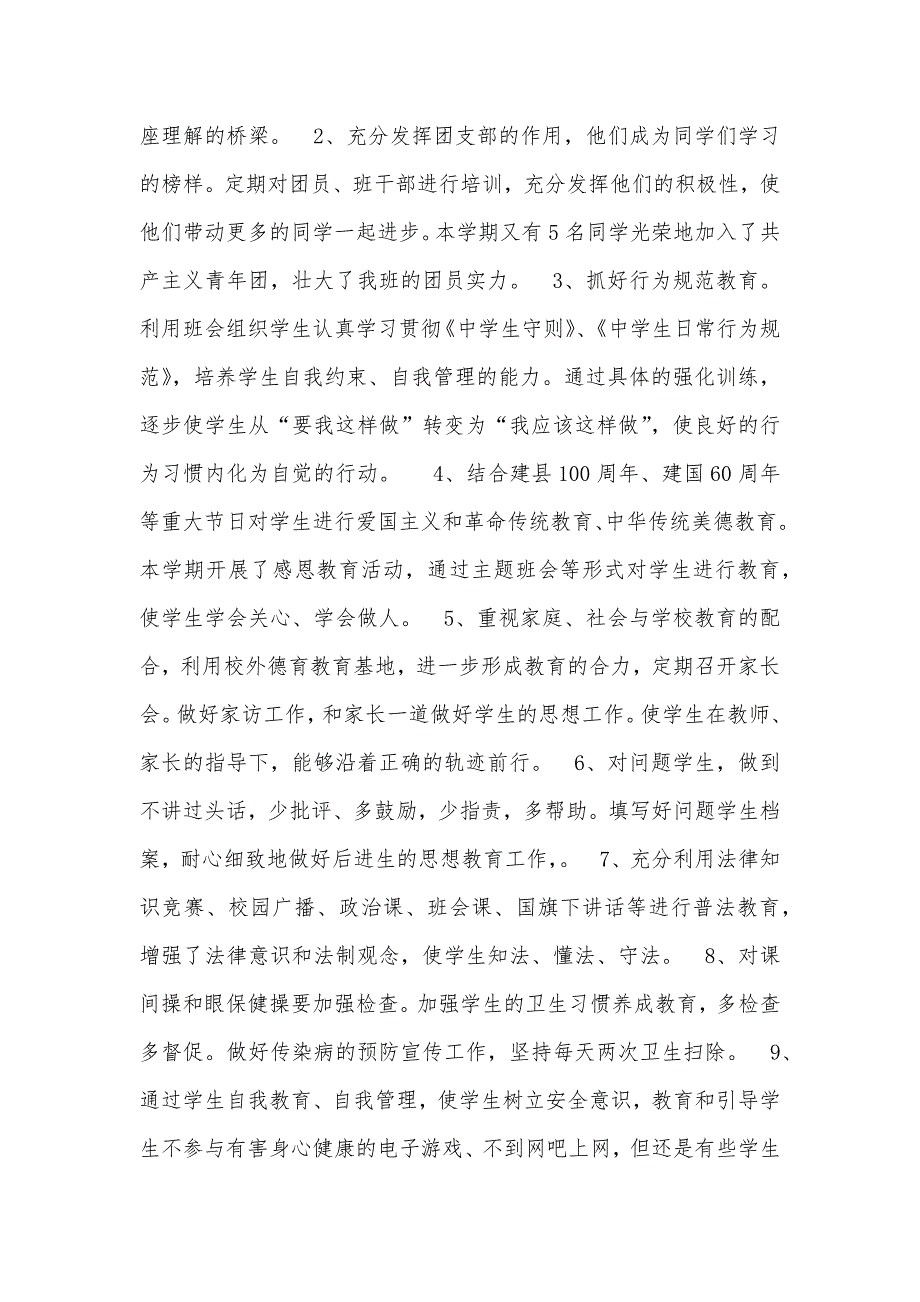 座理解的桥梁。　2、充分发挥团支部的作用，他们成为同学们学习
的榜样。定期对团员、班干部进行培训，充分发挥他们的积极性，使
他们带动更多的同学一起进步。本学期又有 5 名同学光荣地加入了共
产主义青年团，壮大了我班的团员实力。　3、抓好行为规范教育。
利用班会组织学生认真学习贯彻《中学生守则》、《中学生日常行为规
范》，培养学生自我约束、自我管理的能力。通过具体的强化训练，
逐步使学生从“要我这样做”转变为“我应该这样做”，使良好的行
为习惯内化为自觉的行动。　4、结合建县 100 周年、建国 60 周年
等重大节日对学生进行爱国主义和革命传统教育、中华传统美德教育。
本学期开展了感恩教育活动，通过主题班会等形式对学生进行教育，
使学生学会关心、学会做人。　5、重视家庭、社会与学校教育的配
合，利用校外德育教育基地，进一步形成教育的合力，定期召开家长
会。做好家访工作，和家长一道做好学生的思想工作。使学生在教师、
家长的指导下，能够沿着正确的轨迹前行。　6、对问题学生，做到
不讲过头话，少批评、多鼓励，少指责，多帮助。填写好问题学生档
案，耐心细致地做好后进生的思想教育工作，。　7、充分利用法律知
识竞赛、校园广播、政治课、班会课、国旗下讲话等进行普法教育，
增强了法律意识和法制观念，使学生知法、懂法、守法。　8、对课
间操和眼保健操要加强检查。加强学生的卫生习惯养成教育，多检查
多督促。做好传染病的预防宣传工作，坚持每天两次卫生扫除。　9、
通过学生自我教育、自我管理，使学生树立安全意识，教育和引导学
生不参与有害身心健康的电子游戏、不到网吧上网，但还是有些学生